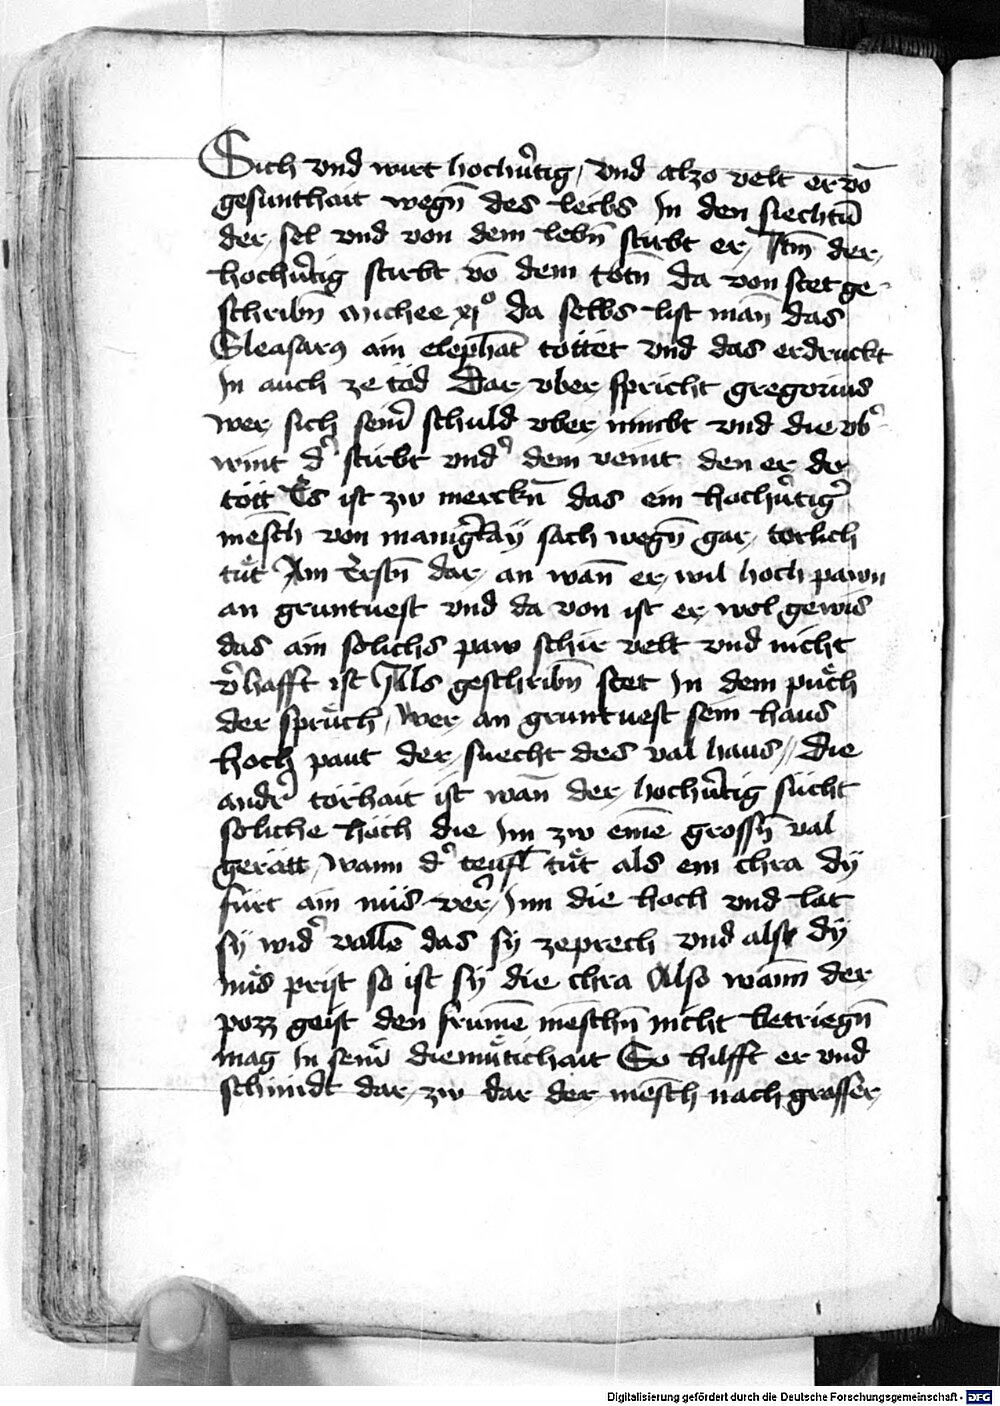 Sich vnd wirt hochu̓tig / vnd alzo velt er vō
gesunthait wegn̄ des leibs In den siechtū
der sel vnd von dem lebn̄ stirbt er / Itm̄ der
hochu̓tig stirbt vō dem totn̄ da von stet ge-
schribn̄ Michee xjº da selbs list man̄ das
Eleasarꝯ ain elephāt töttet vnd das erdruckt
In auch ze tod Dar vber spricht gregorius
wer sich sein̓ schuld vber nimbt vnd die vb̓-
wint d̓ stirbt vnd̓ dem veint den er der
tött Es ist zw merckn̄ das ein hochu̓tig̓
mēsch von manig̓lay sach wegn̄ gar torlich
tuͤt Am Erstn̄ dar an wan̄ er wil hoch pawn
an gruntuest vnd da von ist er wol gewis
das ain solichs paw schir velt vnd nicht
v̓hafft ist Als geschribn̄ stet In dem puͤch
der spruͤch / Wer an gruntuest sein haus
hoch paut der suecht des val haus // Die
andr̓ torhait ist wan̄ der hochu̓tig sücht
soliche höch die Im zw einē grossn̄ val
gerätt / wann d̓ teufl tuͤt als ein chra dÿ
fürt ain nüs ver̓ / Inn die hoch vnd lat
sÿ wid̓ vallē das sÿ zeprech vnd alst dÿ
nuͤs prist so ist sÿ die chra Also wann̄ der
pozz geist den frumē mēschn̄ nicht betriegn̄
mag In sein̓ diemuͤtichait So hilfft er vnd
schindt dar zw dar der mēsch nach grosser
Digitalisierung gefördert durch die Deutsche Forschungsgemeinschaft - DFG